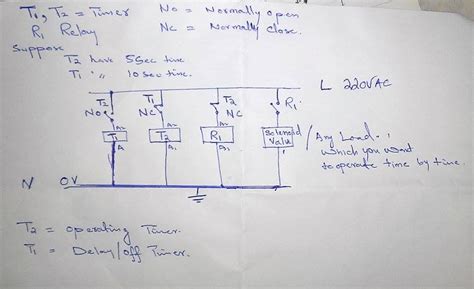 T1, T2 = Timer    No = Normally open
R1 Relay    Nc = Normally close.
Suppose
T2 have 5Sec time
T1 " 10 sec time.
L 220VAC
T2 NO
T1 NC
T2 NC
R1
A2 A2 A2
T1 T2 R1 Solenoid Valu
A1 A1
/ Any Load
which you want
to operate time by time.
N 0V
T2 = operating Timer.
T1 = Delay/off Timer.